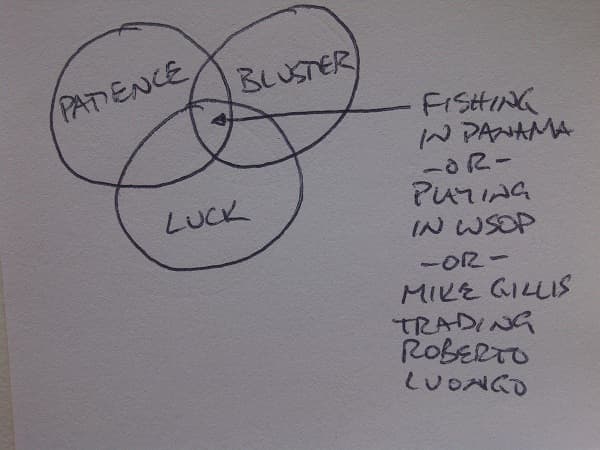 PATIENCE
BLUSTER
LUCK
FISHING
IN PANAMA
-OR-
PLAYING
IN WSOP
-OR-
MIKE GILLIS
TRADING
ROBERTO
LUONGO